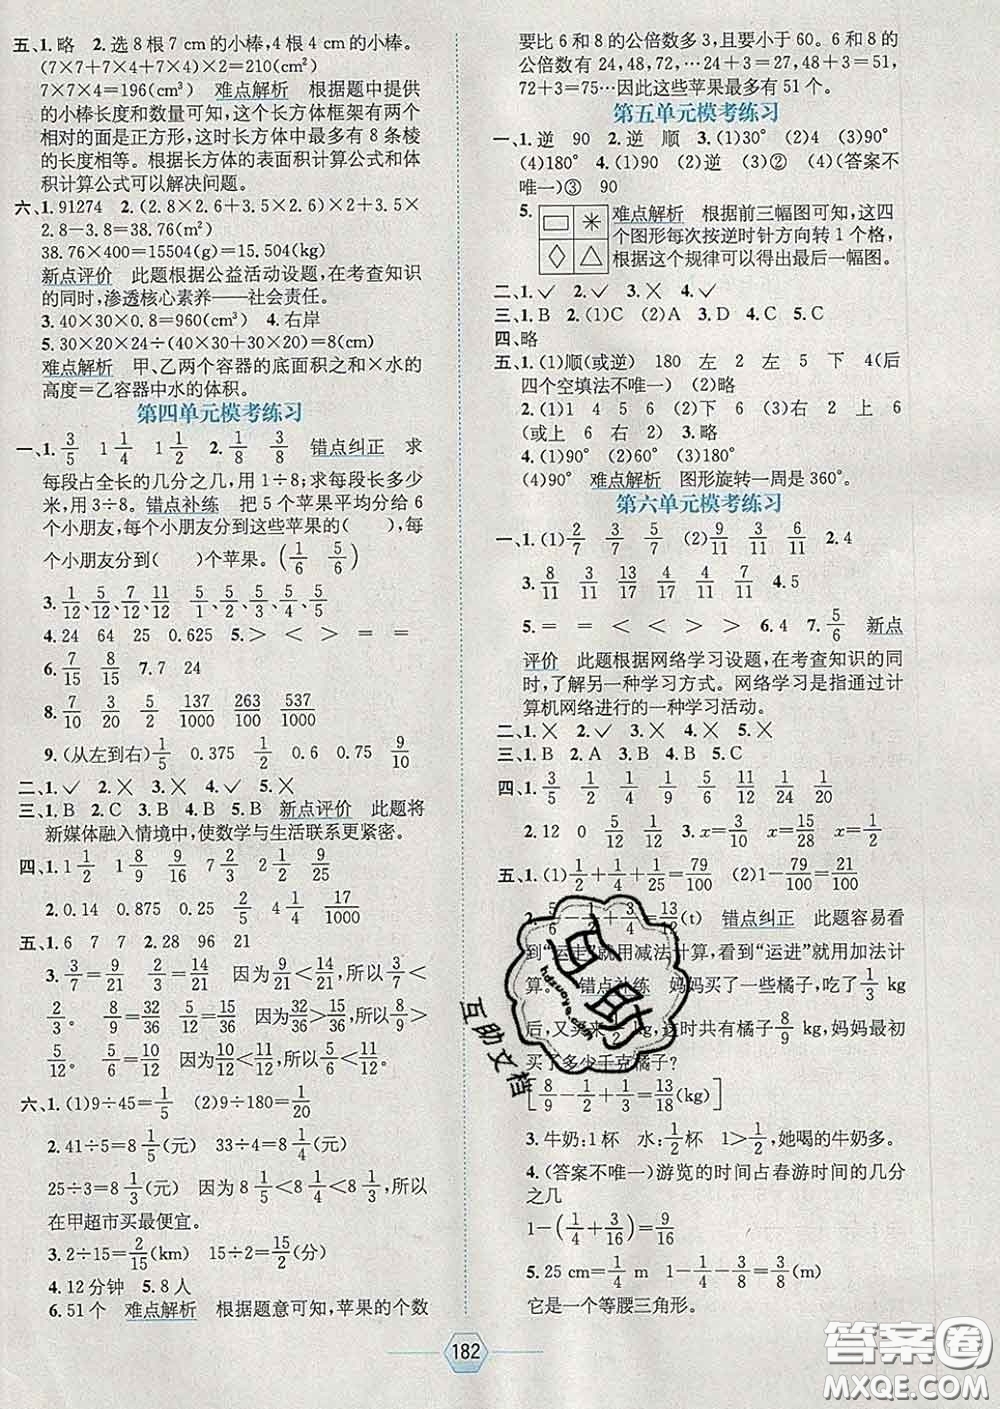 五、1.略 2.选8根7 cm的小棒,4根4 cm的小棒。
(7×7+7×4+7×4)×2=210(cm²)
7×7×4=196(cm³) 难点解析 根据题中提供
的小棒长度和数量可知,这个长方体框架有两个
相对的面是正方形,这时长方体中最多有8条棱
的长度相等。根据长方体的表面积计算公式和体
积计算公式可以解决问题。
六、1.91274 2.(2.8×2.6+3.5×2.6)×2+3.5×
2.8-3.8=38.76(m²)
38.76×400=15504(g)=15.504(kg)
新点评价 此题根据公益活动设题,在考查知识
的同时,渗透核心素养——社会责任。
3.40×30×0.8=960(cm³) 4.右岸
5.30×20×24÷(40×30+30×20)=8(cm)
难点解析 甲、乙两个容器的底面积之和×水的
高度=乙容器中水的体积。
第四单元模考练习
一、1.3/5 1 1/4 1 1/2 2.1/8 3/8 错点纠正 求
每段占全长的几分之几,用1÷8;求每段长多少
米,用3÷8。错点补练 把5个苹果平均分给6
个小朋友,每个小朋友分到这些苹果的( ),每
个小朋友分到( )个苹果。(1/6 5/6)
3.1/12、5/12、7/12、11/12、5/1、5/2、5/3、5/4、5/5
4.24 64 25 0.625 5.> < > = =
6.7/15 8/15 7.7 24
8.7/10 3/20 5/2 187/1000 263/100 537/1000
9.(从左到右)1/4 0.375 1/2 0.6 0.75 9/10
二、1.✓ 2.✕ 3.✕ 4.✓ 5.✕
三、1.B 2.C 3.B 4.B 5.B 新点评价 此题将
新媒体融入情境中,使数学与生活联系更紧密。
四、1.1 1/2 1 8/9 9/16 7 2/3 2 1/2 3/11
2.0.14 0.8 0.95 2/5 4 1/4 17/1000
五、1.6 7 7 2.28 96 21
3.3/7=9/21 2/3=14/21 因为9/21<14/21,所以3/7<
2/3。 8/9=32/36 5/12=15/36 因为32/36>15/36,所以8/9>
5/12。 5/6=10/12 因为10/12<11/12,所以5/6<11/12
六、1.(1)9÷45=1/5 (2)9÷180=1/20
2.41÷5=8 1/5(元) 33÷4=8 1/4(元)
25÷3=8 1/3(元) 因为8 1/5<8 1/4<8 1/3,所以
在甲超市买最便宜。
3.2÷15=2/15(km) 15÷2=15/2(分)
4.12分钟 5.8人
6.51个 难点解析 根据题意可知,苹果的个数
要比6和8的公倍数多3,且要小于60。6和8的
公倍数有24,48,72,…24+3=27,48+3=51,
72+3=75…因此这些苹果最多有51个。
第五单元模考练习
一、1.逆 90 2.逆 顺 3.(1)30° (2)4 (3)90°
(4)180° 4.(1)90 (2)逆 (3)② (4)(答案不
唯一)③ 90
5. 难点解析 根据前三幅图可知,这四
个图形每次按逆时针方向转1个格,
根据这个规律可以得出最后一幅图。
二、1.✓ 2.✓ 3.✕ 4.✓
三、1.B 2.(1)C (2)A 3.D 4.C 5.C
四、略
五、1.(1)顺(或逆) 180 左 2 左 5 下 4(后
四个空填法不唯一) (2)略
2.(1)1 4 5 6 (2)下 6 (3)2 上 6
(或上 6 右 2) 3.略
4.(1)90° (2)60° (3)180°
(4)90° 难点解析 图形旋转一周是360°。
第六单元模考练习
一、1.(1)2/7 3/7 5/7 (2)9/11 6/11 3/11 2.4
3.8/11 3/11 13/17 4/11 7/11 4.5
5.= = < < < > 6.4 7.5/6 新点
评价 此题根据网络学习设题,在考查知识的同
时,了解另一种学习方式。网络学习是指通过计
算机网络进行的一种学习活动。
二、1.✕ 2.✓ 3.✕ 4.✕ 5.✕
三、1.B 2.A 3.B 4.B 5.C
四、1.3/5 1/2 5/9 2/3 1/2 1/12 1/20
2.12 0 5/12 1/2 3.x=3/10 x=15/28 x=1/4
五、1.(1)1/2+1/4+1/25=79/100 (2)1-79/100=21/100
2.5/6-1/2+3/4=13/12(t) 错点纠正 此题容易看
到“运走”就用减法计算,看到“运进”就用加法计
算。 错点补练 妈妈买了一些橘子,吃了1/3 kg
后,又买来1/2 kg,这时共有橘子8/9 kg,妈妈最初
买了多少千克橘子?
[8/9-1/2+1/3=13/18(kg)]
3.牛奶:1杯 水:1/2杯 1>1/2,她喝的牛奶多。
4.(答案不唯一)游览的时间占春游时间的几分
之几
1-(1/4+3/16)=9/16
5.25 cm=1/4 m 1-1/4-3/8=3/8(m)
它是一个等腰三角形。
182
互助文档
答案圈
MXQE.COM